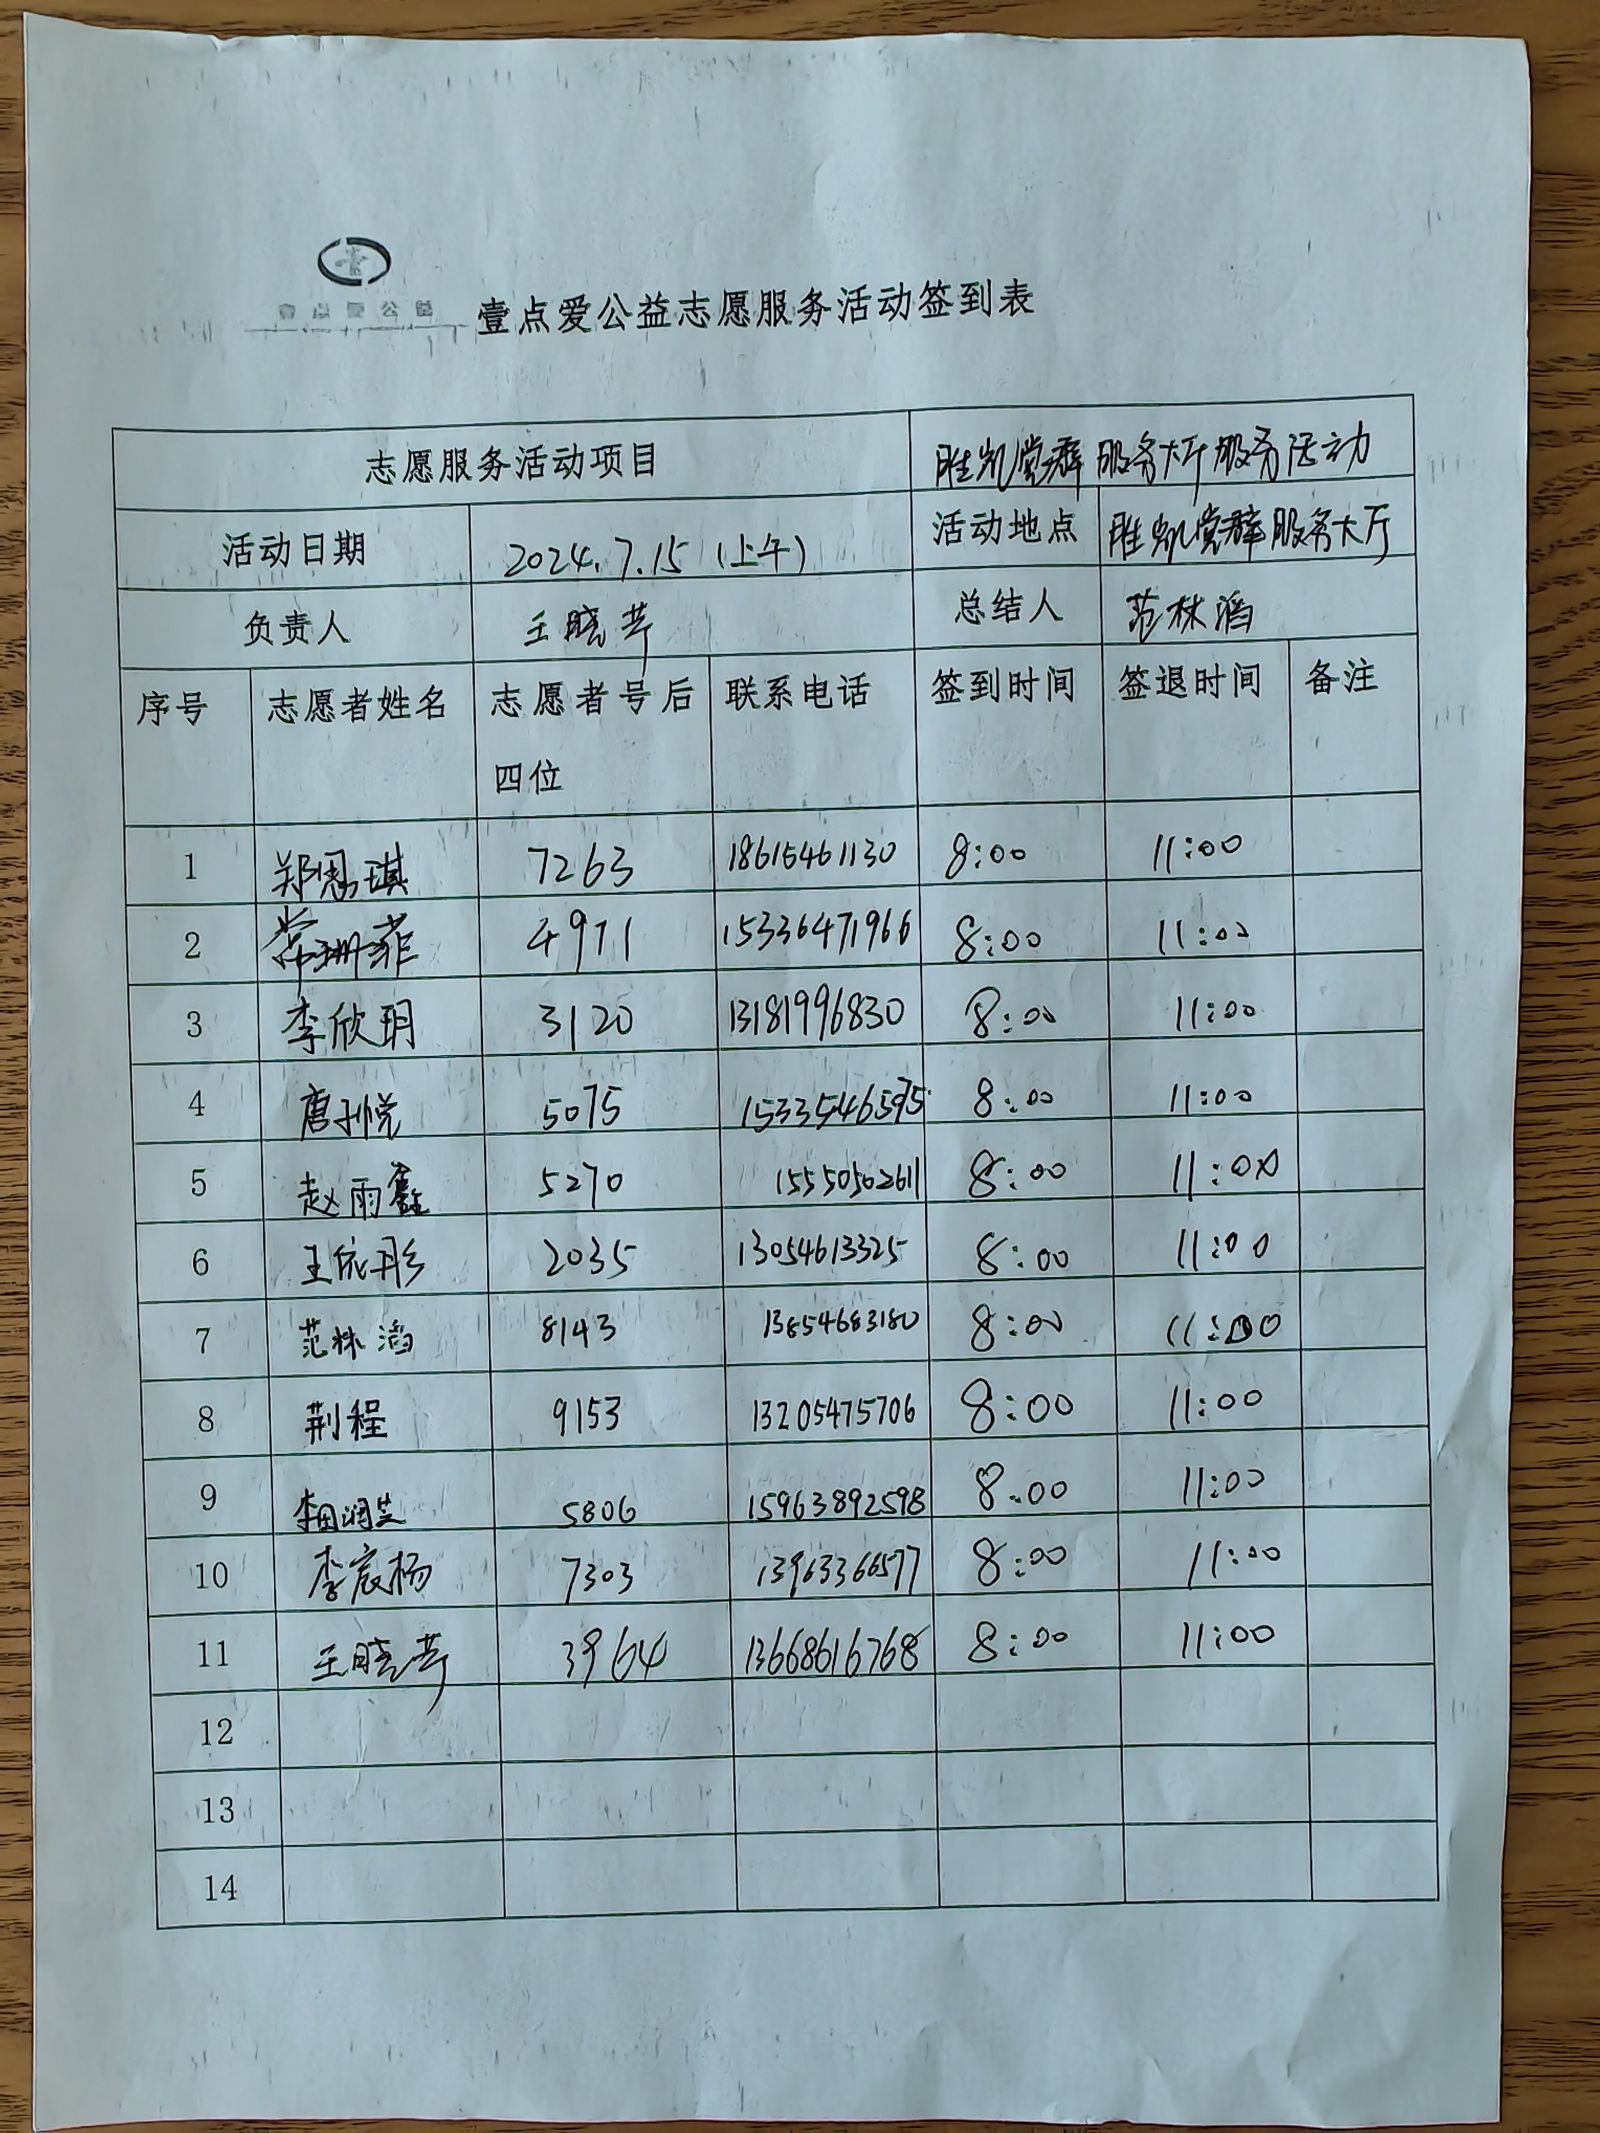 壹点爱公益
壹点爱公益志愿服务活动签到表
志愿服务活动项目 胜凯党群服务大厅服务活动
活动日期 2024.7.15(上午) 活动地点 胜凯党群服务大厅
负责人 王晓芹 总结人 范林滔
序号 志愿者姓名 志愿者号后 联系电话 签到时间 签退时间 备注
四位
1 郑恩琪 7263 18615461130 8:00 11:00
2 常珊菲 4971 15336471966 8:00 11:00
3 李欣玥 3120 13181996830 8:00 11:00
4 唐利悦 5075 15335465975 8:00 11:00
5 赵雨鑫 5270 15550502611 8:00 11:00
6 王依彤 2035 13054613325 8:00 11:00
7 范林滔 8143 13854683180 8:00 11:00
8 荆程 9153 13205475706 8:00 11:00
9 5806 15963892598 8:00 11:00
10 李宸杨 7303 13963366577 8:00 11:00
11 王晓芹 3964 13668616768 8:00 11:00
12
13
14